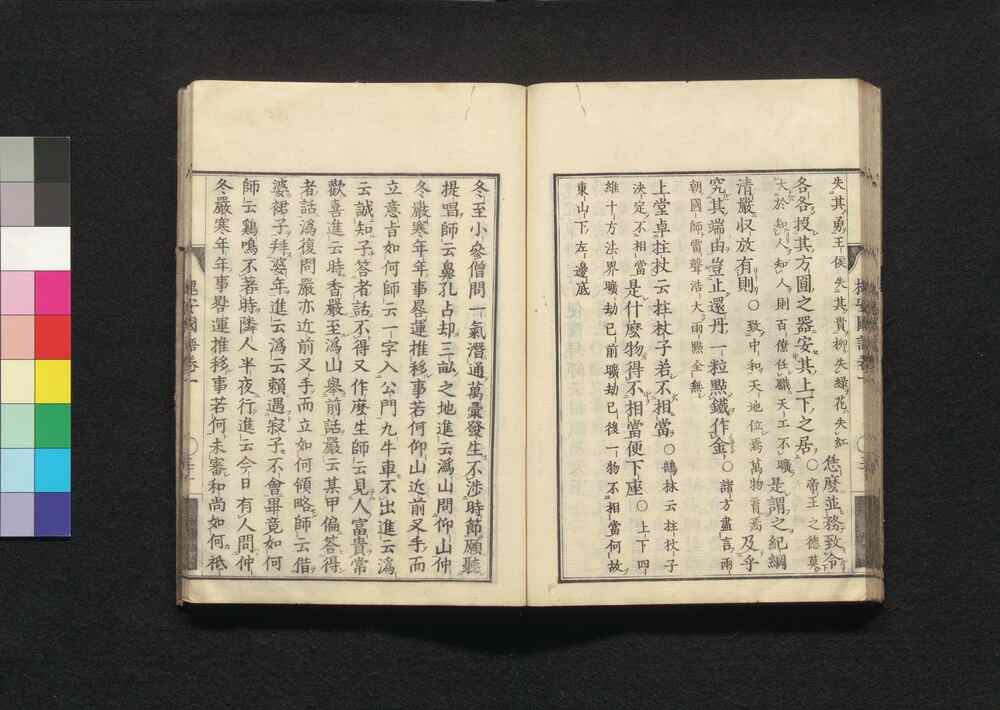 失其勇王侯失其貴柳失緑花失紅 恁麼並務致令
各各授其方圓之器安其上下之居 ○帝王之德莫
大於知人知人則百僚任職天工不曠 是謂之紀綱
清嚴収放有則 ○致中和天地位焉萬物育焉 及乎
究其端由豈止還丹一粒點鐵作金 ○諸方盡言兩
朝國師雷聲浩大雨點全無
上堂卓拄杖云拄杖子若不相當 ○鶴林云拄杖子
決定不相當 是什麼物得不相當便下座 ○上下四
維十方法界曠劫已前曠劫已後一物不相當何故
東山下左邊底
槐安國語卷一
冬至小參僧問一氣潛通萬彙發生不涉時節願聽
提唱師云鼻孔占却三畝之地進云潙山問仰山仲
冬嚴寒年年事晷運推移事若何仰山近前叉手而
立意旨如何師云一字入公門九牛車不出進云潙
云誠知子答者話不得又作麼生師云見人富貴常
歡喜進云時香嚴至潙山舉前話嚴云某甲偏答得
者話潙復問嚴亦近前叉手而立如何領略師云借
婆裙子拜婆年進云潙云賴遇寂子不會畢竟如何
師云鷄鳴不著時隣人半夜行進云今日有人問仲
冬嚴寒年年事晷運推移事若何未審和尚如何祗
槐安國語卷一